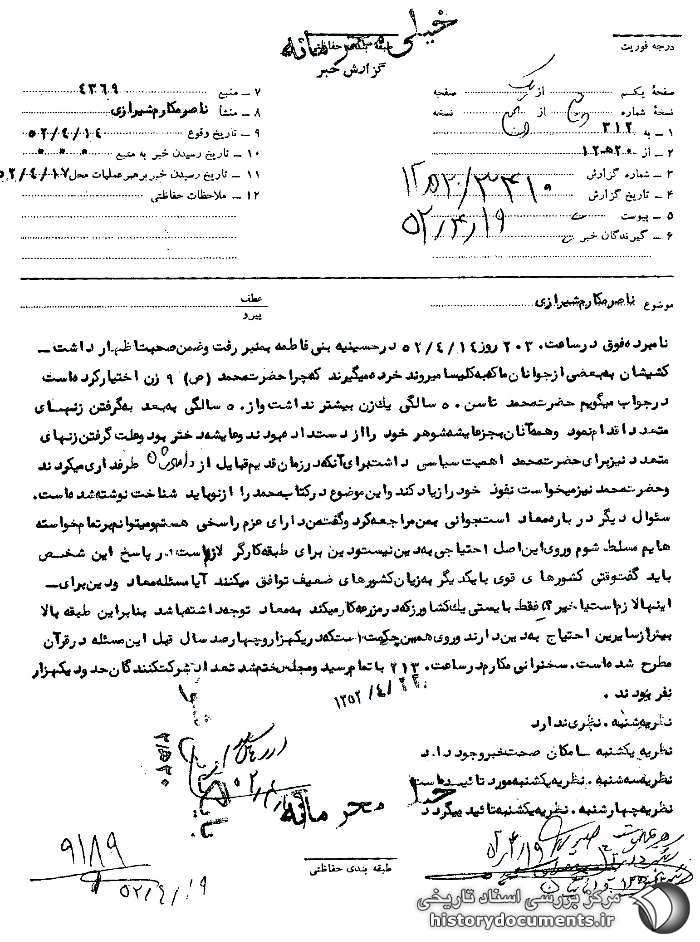 خیلی محرمانه
درجه فوریت
طبقه بندی حفاظتی
گزارش خبر
صفحهٔ یکم از یک صفحه
نسخهٔ شماره از نسخه
۱ – به ۳۱۲
۲ – از ۱۲۰۵۲۰
۳ – شماره گزارش ۱۲۰۵۲۰/۳۴۱۰
۴ – تاریخ گزارش ۵۲/۴/۱۹
۵ – پیوست
۶ – گیرندگان خبر
۷ – منبع ۴۳۶۹
۸ – منشأ ناصر مکارم شیرازی
۹ – تاریخ وقوع ۵۲/۴/۱۴
۱۰ – تاریخ رسیدن خبر به منبع ۰۰۰
۱۱ – تاریخ رسیدن خبر برهبر عملیات محل ۵۲/۴/۱۷
۱۲ – ملاحظات حفاظتی
موضوع ناصر مکارم شیرازی
عطف
پیرو
نامبرده فوق در ساعت ۲۰۳۰ روز ۵۲/۴/۱۴ در حسینیه بنی فاطمه بمنبر رفت و ضمن صحبت اظهار داشت –
کشیشان به بعضی از جوانان ما که به کلیسا میروند خرده میگیرند که چرا حضرت محمد (ص) ۹ زن اختیار کرده است
در جواب میگویم حضرت محمد تا سن ۵۰ سالگی یک زن بیشتر نداشت و از ۵۰ سالگی به بعد به گرفتن زنهای
متعدد اقدام نمود و همه آنان بجز عایشه شوهر خود را از دست داده بودند و عایشه دختر بود و علت گرفتن زنهای
متعدد نیز برای حضرت محمد اهمیت سیاسی داشت برای آنکه در زمان قدیم قبایل از دامادشان طرفداری میکردند
و حضرت محمد نیز میخواست نفوذ خود را زیاد کند و این موضوع در کتاب محمد را از نو باید شناخت نوشته شده است.
سئوال دیگر در باره معاد است جوانی بمن مراجعه کرد و گفت من دارای عزم راسخی هستم و میتوانم بر تمام خواسته
هایم مسلط شوم و روی این اصل احتیاجی به دین نیست و دین برای طبقه کارگر لازم است. در پاسخ این شخص
باید گفت وقتی کشورهای قوی با یکدیگر به زیان کشورهای ضعیف توافق میکنند آیا مسئله معاد و دین برای –
اینها لازم است یا خیر؟ فقط بایستی یک کشاورز که در مزرعه کار میکند به معاد توجه داشته باشد بنابراین طبقه بالا
بیشتر از سایرین احتیاج به دین دارند و روی همین حکمت است که در یکهزار و چهارصد سال قبل این مسئله در قرآن
مطرح شده است. سخنرانی مکارم در ساعت ۲۱۳۰ با تمام رسید و مجلس ختم شد تعداد شرکت کنندگان حدود یکهزار
نفر بودند.
نظریه شنبه. نظری ندارد
نظریه یکشنبه – امکان صحت خبر وجود دارد
نظریه سه شنبه. نظریه یکشنبه مورد تائید است
نظریه چهارشنبه. نظریه یکشنبه تائید میگردد
۱۳۵۲/۴/۲۳
خیلی محرمانه
بایگانی شود
۹۱۸۹
۵۲/۴/۱۹
۵۲/۴/۱۹
طبقه بندی حفاظتی
مرکز بررسی اسناد تاریخی
historydocuments.ir